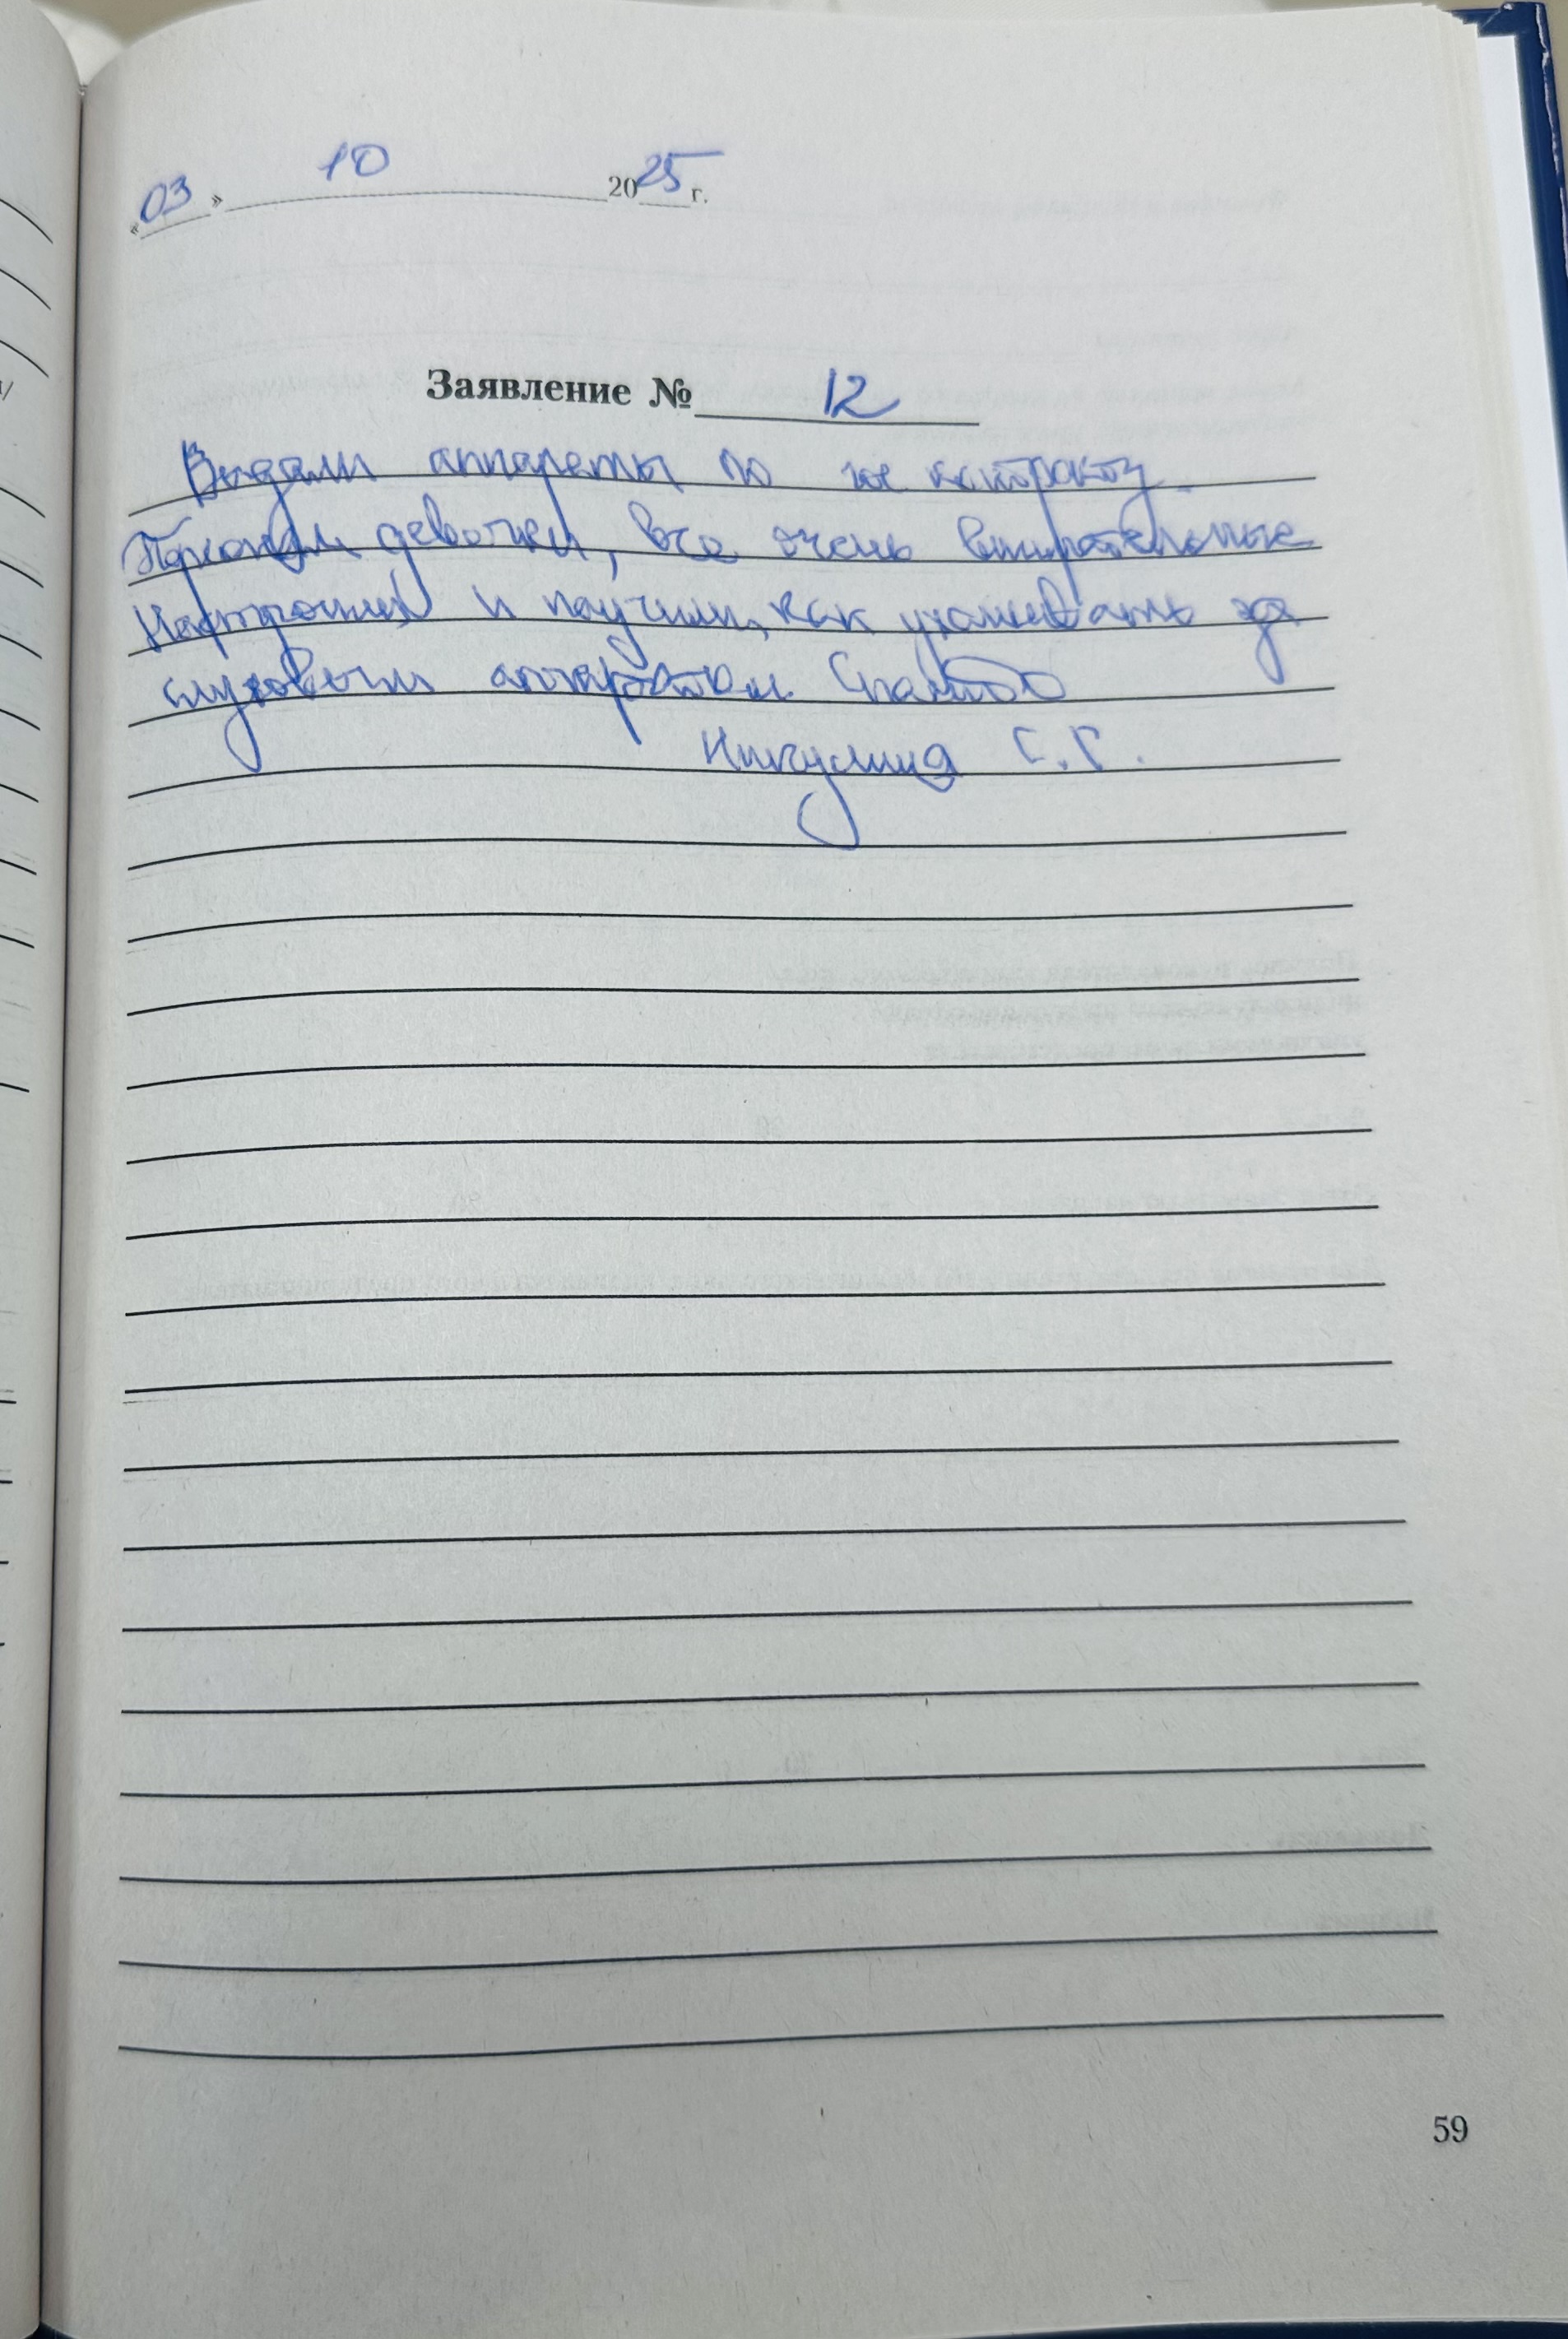 «03» 10 2025 г.
Заявление № 12
Выдали аппараты по контракту.
девочки, все очень внимательные
Настроили и научили, как ухаживать за
слуховым аппаратом Спасибо
Никулина Г.Г.
59